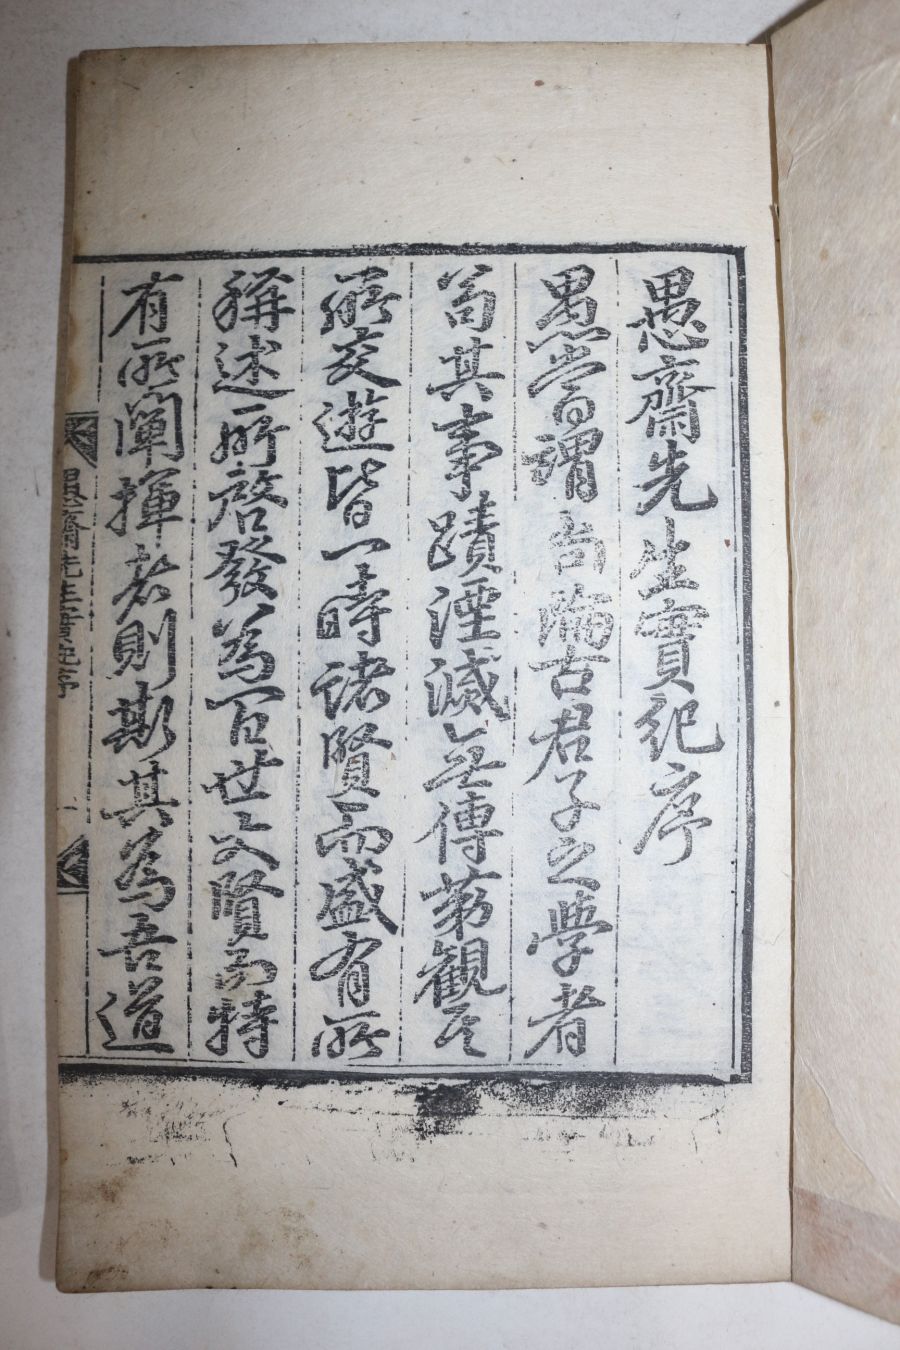 愚齋先生實紀序
愚嘗謂尚論古君子之學者
苟其事蹟湮滅無傳第觀其
所交遊皆一時諸賢而盛有所
稱述所啓發爲百世之賢而特
有所闡揮者則斯其爲吾道
愚齋先生實紀序